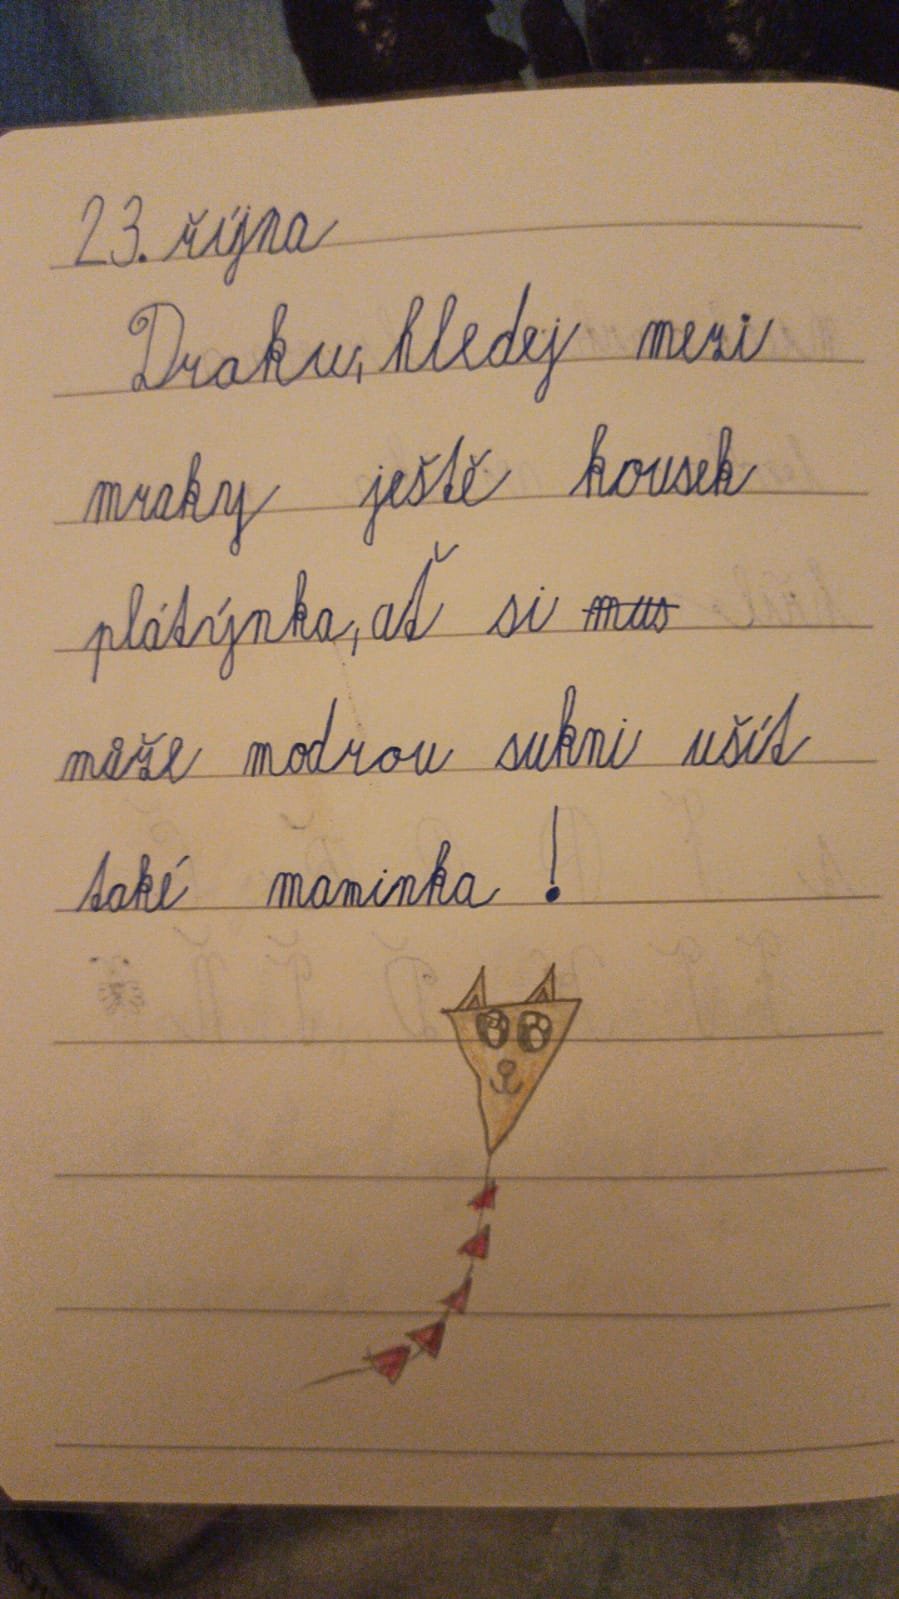 23. října
Draku, hledej mezi
mraky ještě kousek
plátýnka, ať si mus
může modrou sukni ušít
také maminka !